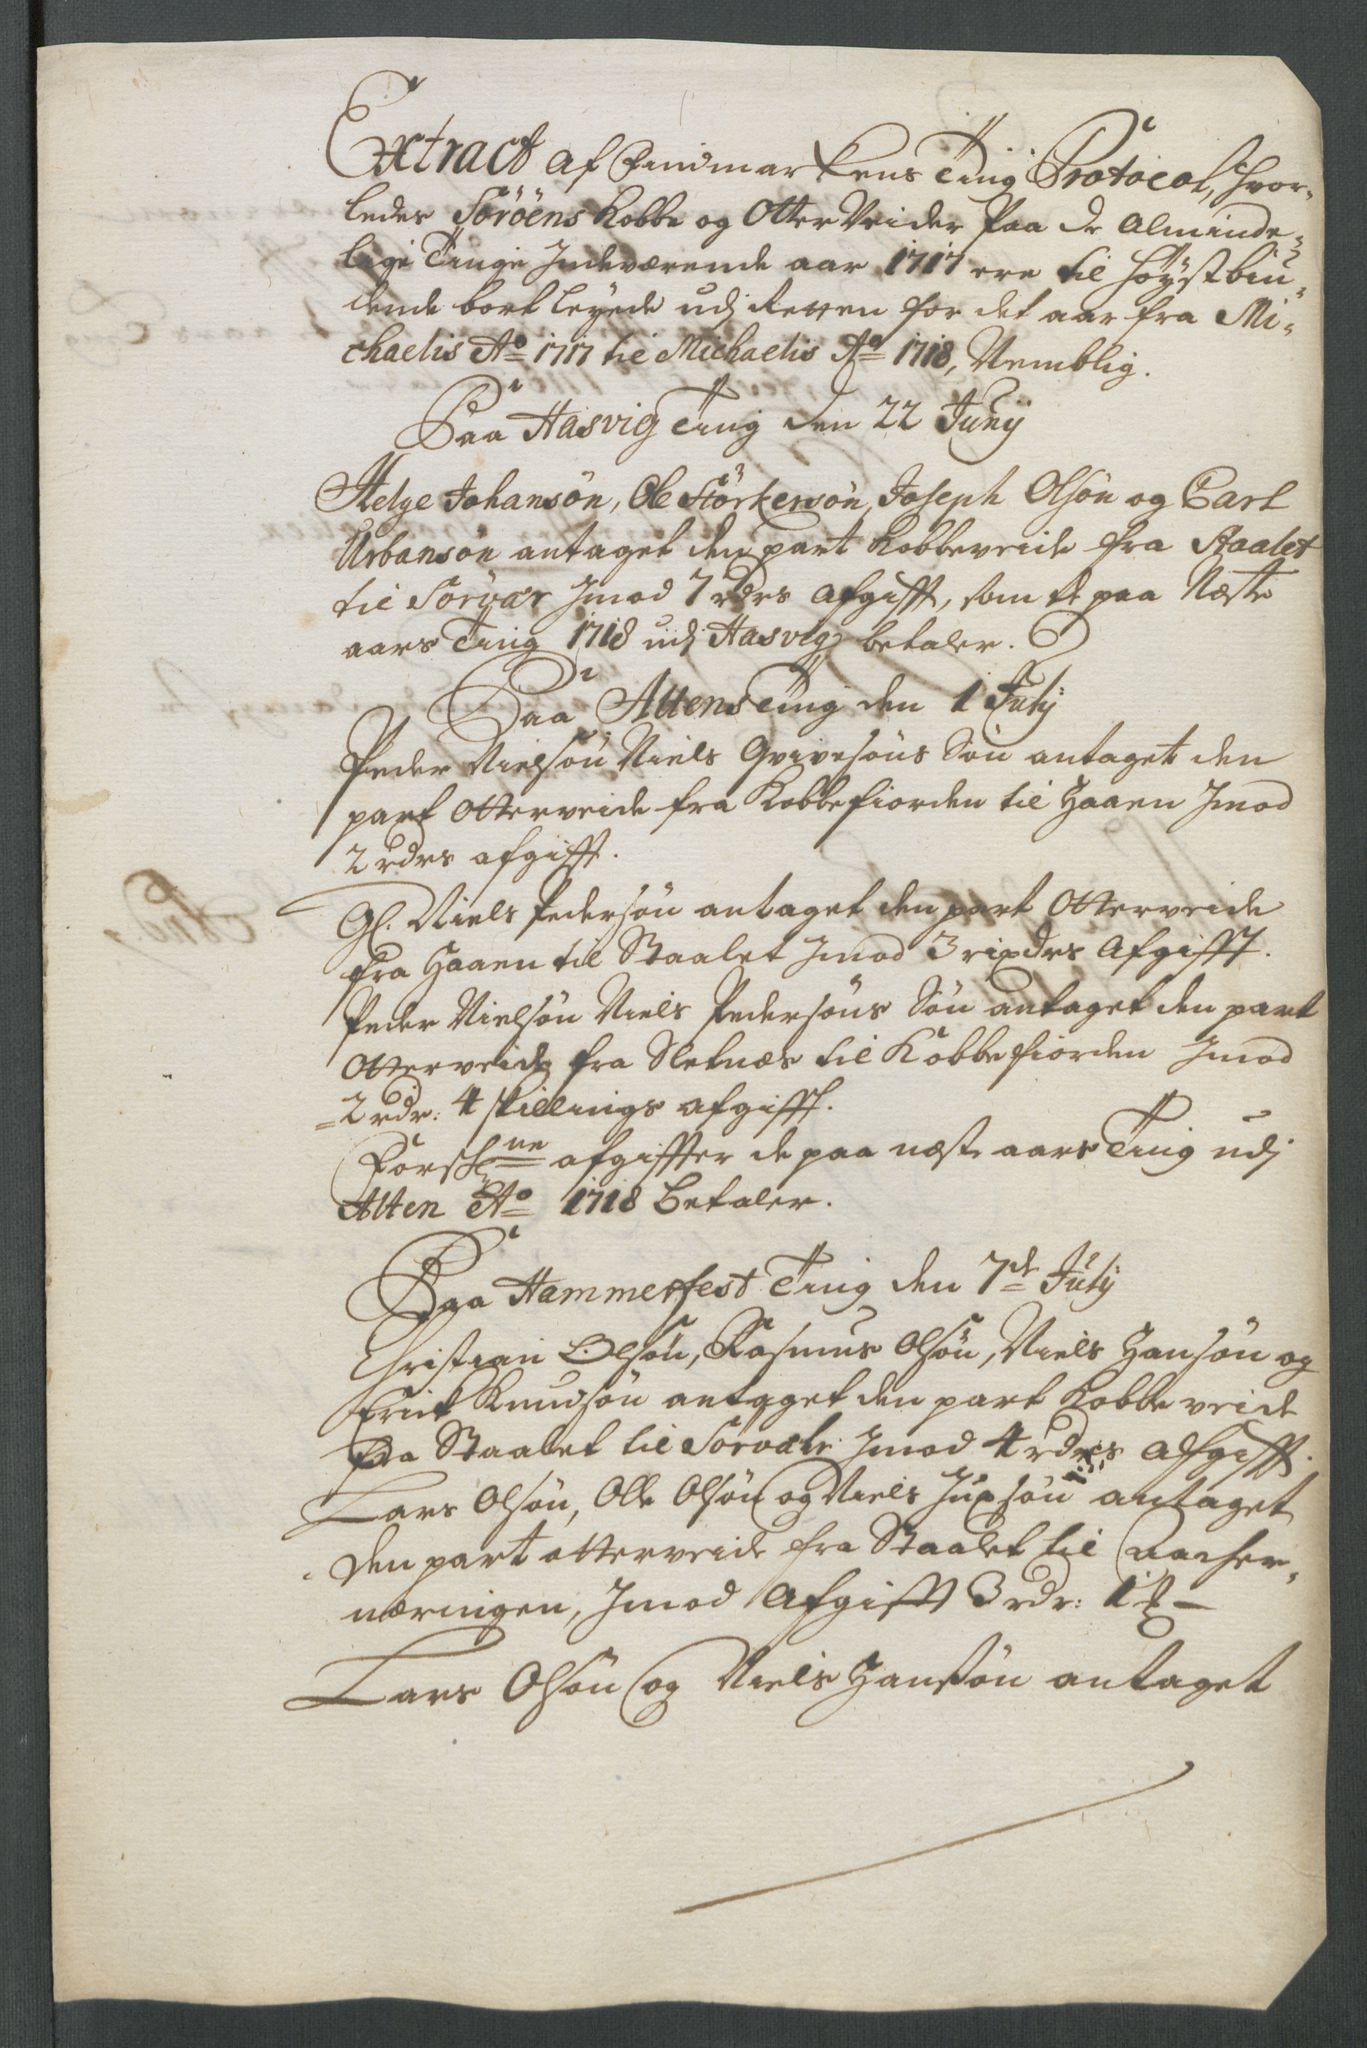 Extract af Findmarkens Ting Protocol, hvor-
ledes Söröens Kobbe og Otter Veider Paa de Alminde-
lige Tinge Indeværende aar 1717 ere til høystbiu-
dende bort leyede udj Retten for det aar fra Mi-
chaelis Ao 1717 til Michaelis Ao 1718, Nemblig.
Paa Hasvig Ting den 22 Junij
Helge Johansön, Ole Störkersön, Joseph Olsön og Carl
Urbansön antaget den part Kobbeveide fra Staalet
til Sorvær Imod 7 rdrs Afgifft, som de paa Næste
aars Ting 1718 udj Hasvig betaler.
Paa Altens Ting den 1 Julij
Peder Nielsön Niels Gvivesöns Sön antaget den
part Otterveide fra Kobbefiorden til Haaen Imod
2 rdrs afgifft.
Gl. Niels Pedersön antaget den part Otterveide
fra Haaen til Staalet Imod 3 rixdrs Afgifft.
Peder Nielsön Niels Pedersöns Sön antaget den part
Otterveide fra Sletnæs til Kobbefiorden Imod
2 rdr: 4 skillings afgifft.
Forschne afgiffter de paa næste aars Ting udj
Alten Ao 1718 Betaler.
Paa Hammerfest Ting den 7de Julij
Christian Olsön, Rasmus Olsön, Niels Hansön og
Erick Knudsön antaget den part Kobbe veide
fra Staalet til Sorvær Imod 4 rdrs Afgifft.
Lars Olsön, Olle Olsön og Niels antaget
Den part otterveide fra Staalet til
næringen, Imod Afgifft 3 rdr: 1
Lars Olsön og Niels Hansön antaget